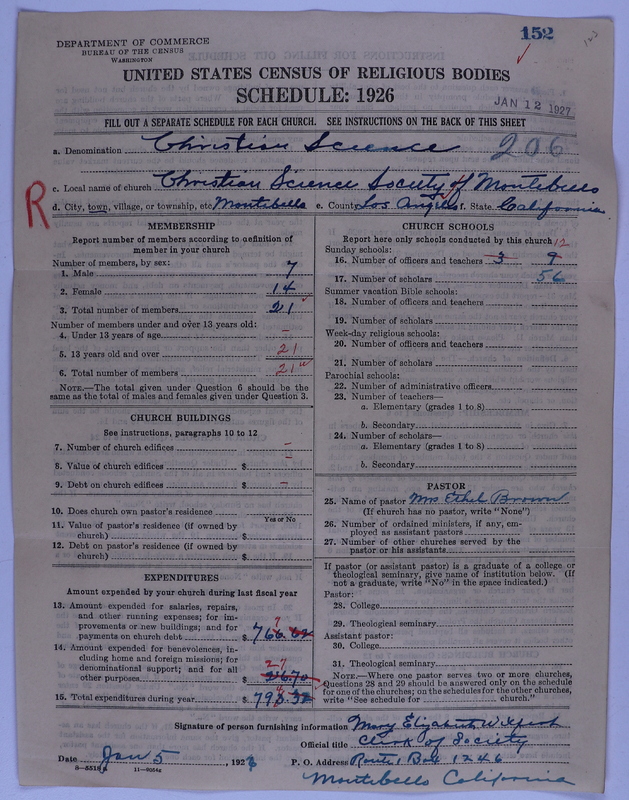 152
DEPARTMENT OF COMMERCE
BUREAU OF THE CENSUS
WASHINGTON
UNITED STATES CENSUS OF RELIGIOUS BODIES
SCHEDULE: 1926
JAN 12 1927
FILL OUT A SEPARATE SCHEDULE FOR EACH CHURCH. SEE INSTRUCTIONS ON THE BACK OF THIS SHEET
a. Denomination Christian Science 206
c. Local name of church Christian Science Society of Montebello
R
d. City, town, village, or township, etc. Montebello e. County Los Angeles f. State California
MEMBERSHIP
Report number of members according to definition of
member in your church
Number of members, by sex:
1. Male 7
2. Female 14
3. Total number of members 21
Number of members under and over 13 years old:
4. Under 13 years of age –
5. 13 years old and over 21
6. Total number of members 21
NOTE.—The total given under Question 6 should be
same as the total of males and females given under Question 3.
CHURCH BUILDINGS
See instructions, paragraphs 10 to 12
7. Number of church edifices –
8. Value of church edifices $ –
9. Debt on church edifices $ –
10. Does church own pastor's residence
Yes or No
11. Value of pastor's residence (if owned by
church) $
12. Debt on pastor's residence (if owned by
church) $
EXPENDITURES
Amount expended by your church during last fiscal year
13. Amount expended for salaries, repairs,
and other running expenses; for im-
provements or new buildings; and for
payments on church debt $ 766.62
14. Amount expended for benevolences, in-
cluding home and foreign missions; for
denominational support; and for all
other purposes 27 $ 26.70
15. Total expenditures during year $ 793.32
CHURCH SCHOOLS
Report here only schools conducted by this church 12
Sunday schools:
16. Number of officers and teachers 3 9
17. Number of scholars 56
Summer vacation Bible schools:
18. Number of officers and teachers
19. Number of scholars
Week-day religious schools:
20. Number of officers and teachers
21. Number of scholars
Parochial schools:
22. Number of administrative officers
23. Number of teachers—
a. Elementary (grades 1 to 8)
b. Secondary
24. Number of scholars—
a. Elementary (grades 1 to 8)
b. Secondary
PASTOR
25. Name of pastor Mrs Ethel Brown
(If church has no pastor, write "None")
26. Number of ordained ministers, if any, em-
ployed as assistant pastors
27. Number of other churches served by the
pastor or his assistants
If pastor (or assistant pastor) is a graduate of a college or
theological seminary, give name of institution below. (If
not a graduate, write "No" in the space indicated.)
Pastor:
28. College
29. Theological seminary
Assistant pastor:
30. College
31. Theological seminary
NOTE.—Where one pastor serves two or more churches,
Questions 28 and 29 should be answered only on the schedule
for one of the churches; on the schedules for the other churches,
write "See schedule for church."
Signature of person furnishing information Mary Elizabeth
Official title Clerk of Society
Date Jan 5, 192 P. O. Address Route 1 Box 1246
8—5518 11—9054a
Montebello California